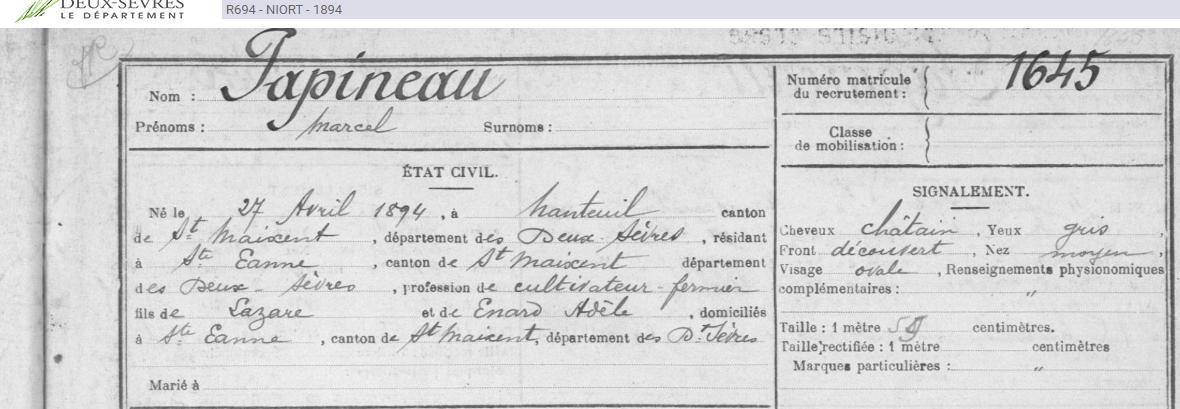 DEUX-SÈVRES
LE DÉPARTEMENT
R694 - NIORT - 1894
Nom : Papineau
Prénoms : Marcel Surnoms :
Numéro matricule
du recrutement : 1645
Classe
de mobilisation :
ÉTAT CIVIL.
Né le 27 Avril 1894, à Nanteuil canton
de St Maixent, département des Deux-Sèvres, résidant
à Ste Eanne, canton de St Maixent département
des Deux-Sèvres, profession de cultivateur-fermier
fils de Lazare et de Enard Adèle, domiciliés
à Ste Eanne, canton de St Maixent, département des Dx Sèvres
Marié à
SIGNALEMENT.
Cheveux châtain, Yeux gris,
Front découvert, Nez moyen,
Visage ovale, Renseignements physionomiques
complémentaires : "
Taille : 1 mètre centimètres.
Taille rectifiée : 1 mètre centimètres
Marques particulières : "